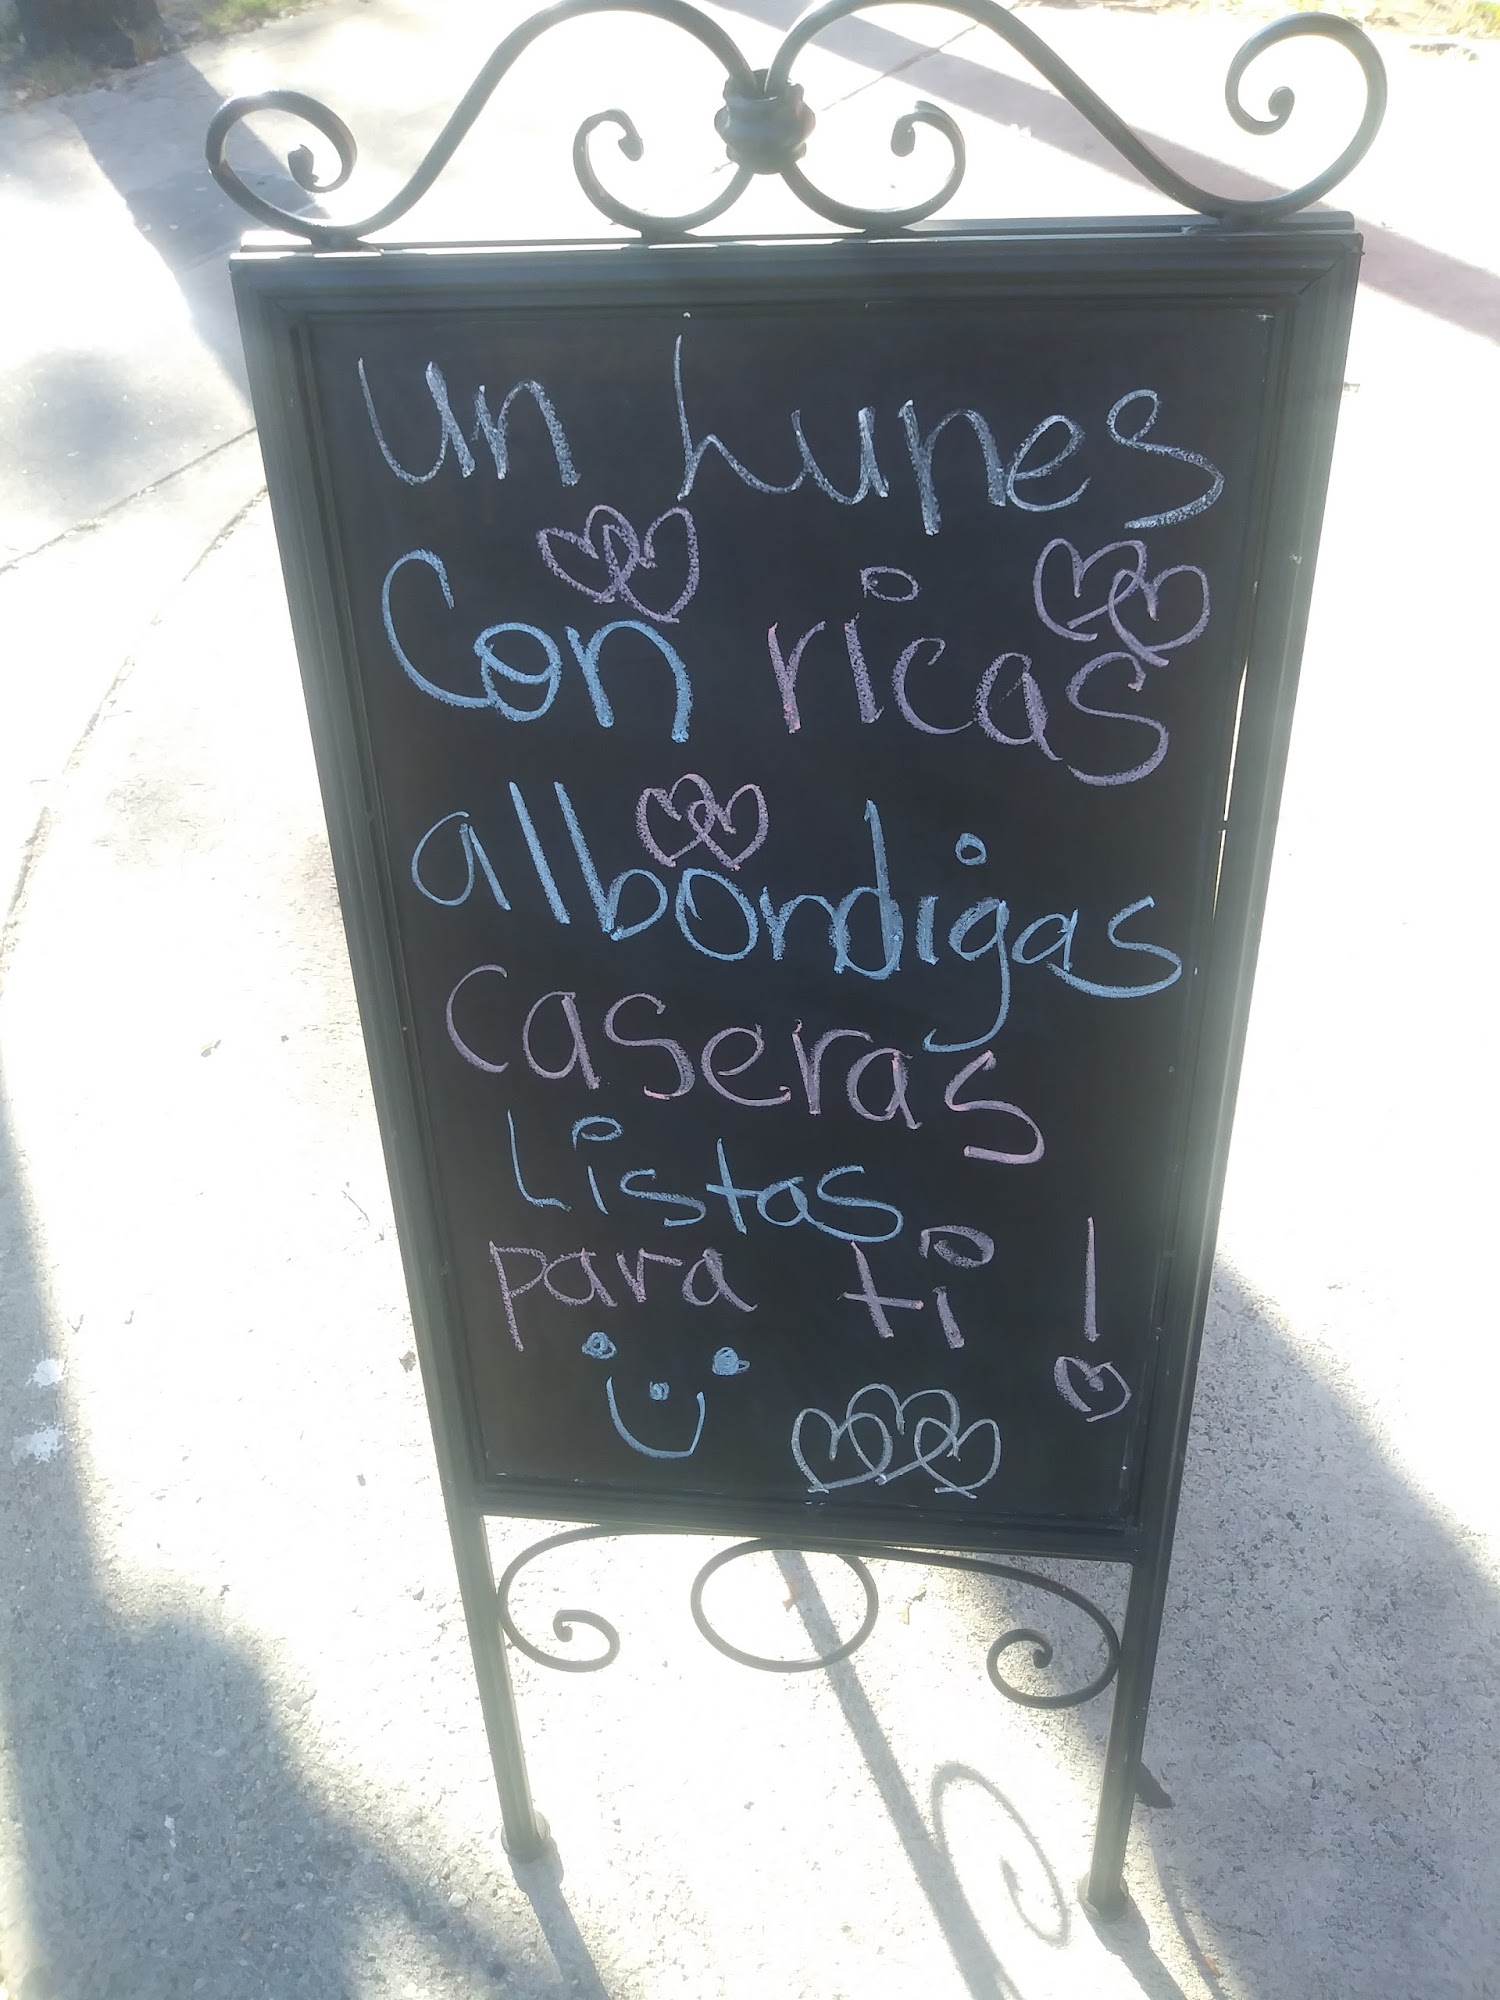 Un Lunes
Con ricas
albondigas
caseras
Listas
para ti !